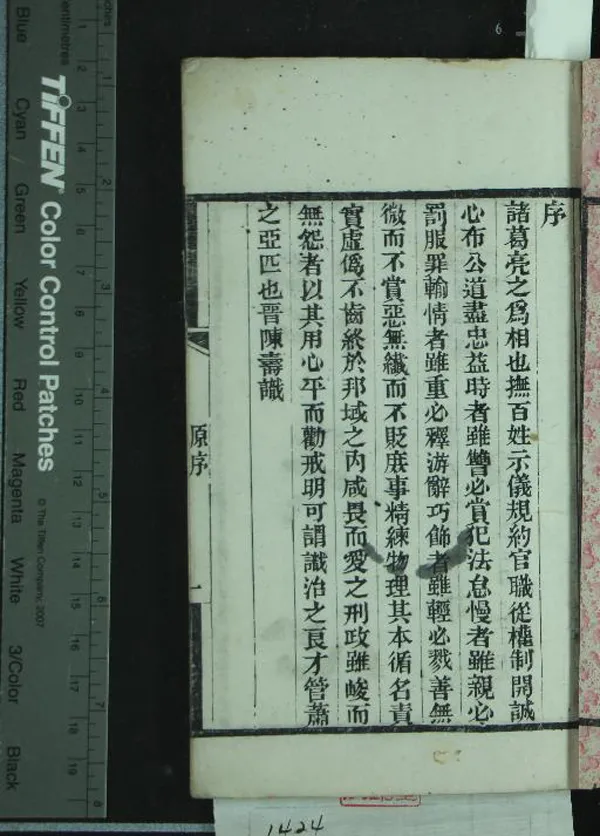 序
諸葛亮之爲相也撫百姓示儀規約官職從權制開誠
心布公道盡忠益時者雖讐必賞犯法怠慢者雖親必
罰服罪輸情者雖重必釋游辭巧飾者雖輕必戮善無
微而不賞惡無纖而不貶庶事精練物理其本循名責
實虛僞不齒終於邦域之內咸畏而愛之刑政雖峻而
無怨者以其用心平而勸戒明可謂識治之良才管蕭
之亞匹也晉陳壽識
原序
一
TIFFEN Color Control Patches
© The Tiffen Company, 2007
Blue Cyan Green Yellow Red Magenta White 3/Color Black
1424